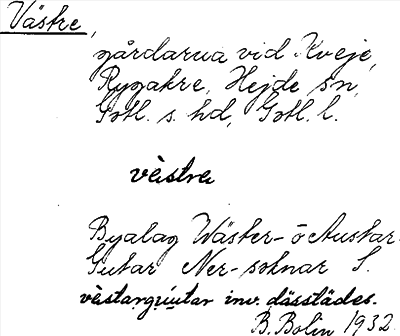 Västre,
gårdarna vid Kveje,
Rygakre, Hejde sn,
Gotl. s. hd, Gotl. l.
vèstra
Byalag Wäster- ö Austar
Gutar Ner-soknar S.
vèstargutar inv. dässtädes.
B. Bolin 1932.